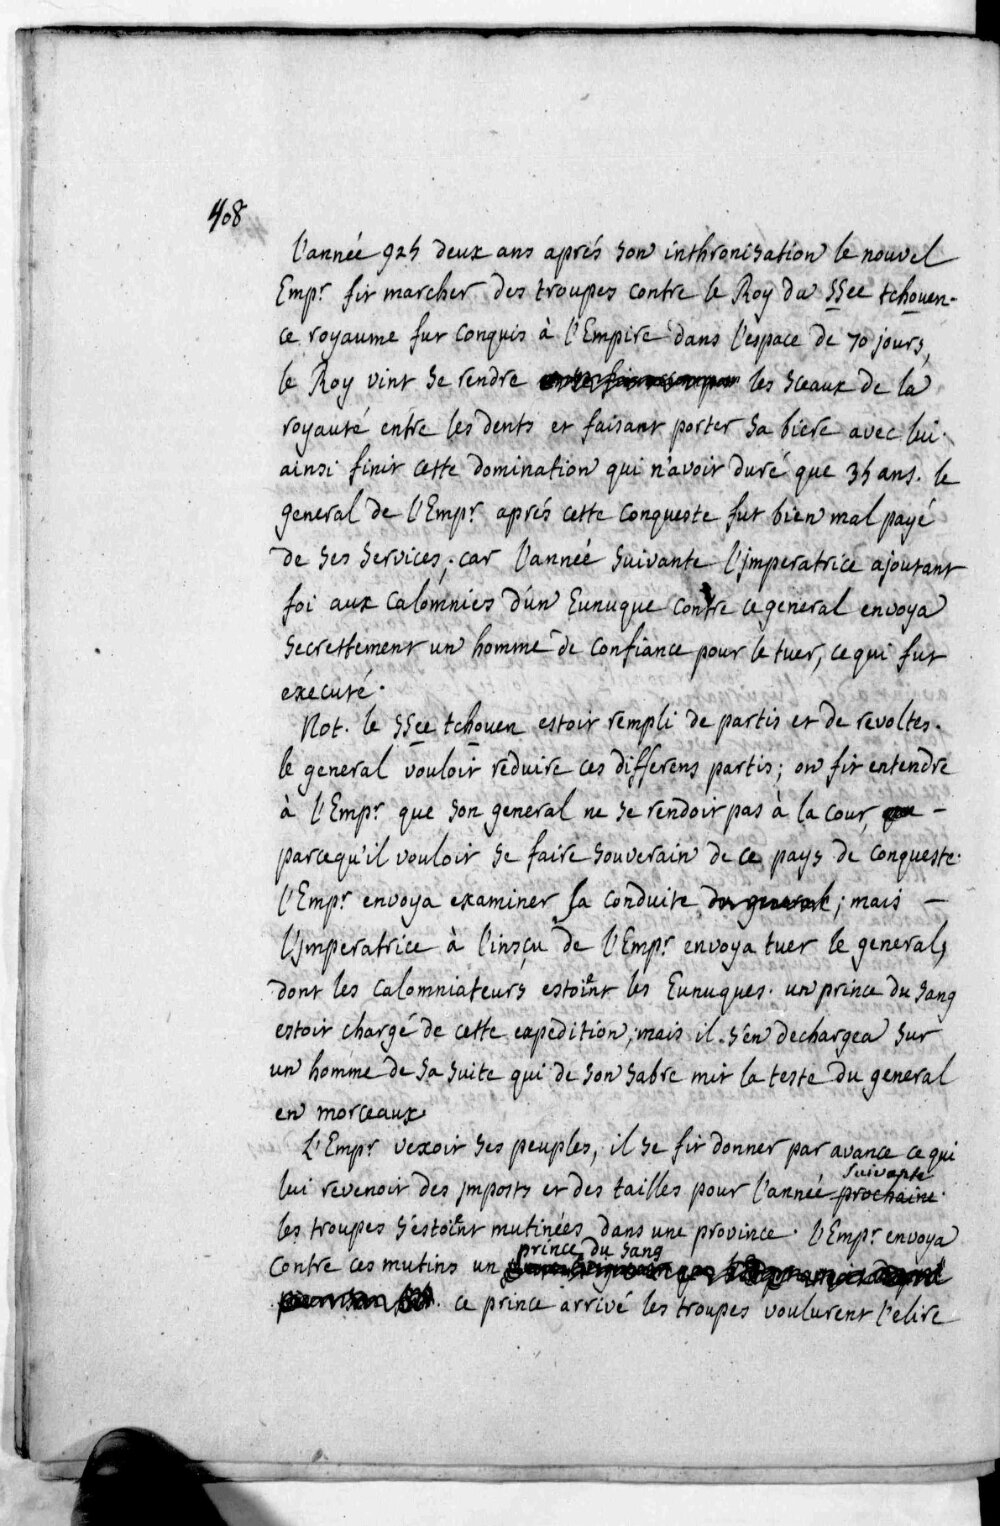 408
l'année 925 deux ans aprés son inthronisation le nouvel
Emp.r fit marcher des troupes contre le Roy du SSee tchouen-
ce royaume fut conquis à l'Empire dans l'espace de 70 jours,
le Roy vint se rendre les sceaux de la
royauté entre les dents et faisant porter sa biere avec lui.
ainsi finit cette domination qui n'avoit duré que 35 ans. le
general de l'Emp.r aprés cette conqueste fut bien mal payé
de ses services; car l'année suivante l'jmperatrice ajoutant
foi aux calomnies d'un Eunuque contre ce general envoya
secrettement un homme de confiance pour le tuer, ce qui fut
executé.
Not. le SSee tchouen estoit rempli de partis et de revoltes.
le general vouloit réduire ces differens partis; on fit entendre
à l'Emp.r que son general ne se rendoit pas à la cour, –
parcequ'il vouloit se faire souverain de ce pays de conqueste.
l'Emp.r envoya examiner sa conduite du general; mais –
l'Jmperatrice à l'insçu de l'Emp.r envoya tuer le general,
dont les calomniateurs estoient les Eunuques. un prince du sang
estoit chargé de cette expedition; mais il s'en dechargea sur
un homme de sa suite qui de son sabre mit la teste du general
en morceaux.
L'Emp.r vexoit ses peuples, il se fit donner par avance ce qui
lui revenoit des jmposts et des tailles pour l'année prochaine suivante.
les troupes s'estoient mutinées dans une province. l'Emp.r envoya
contre ces mutins un prince du sang
ce prince arrivé les troupes voulurent l'elire